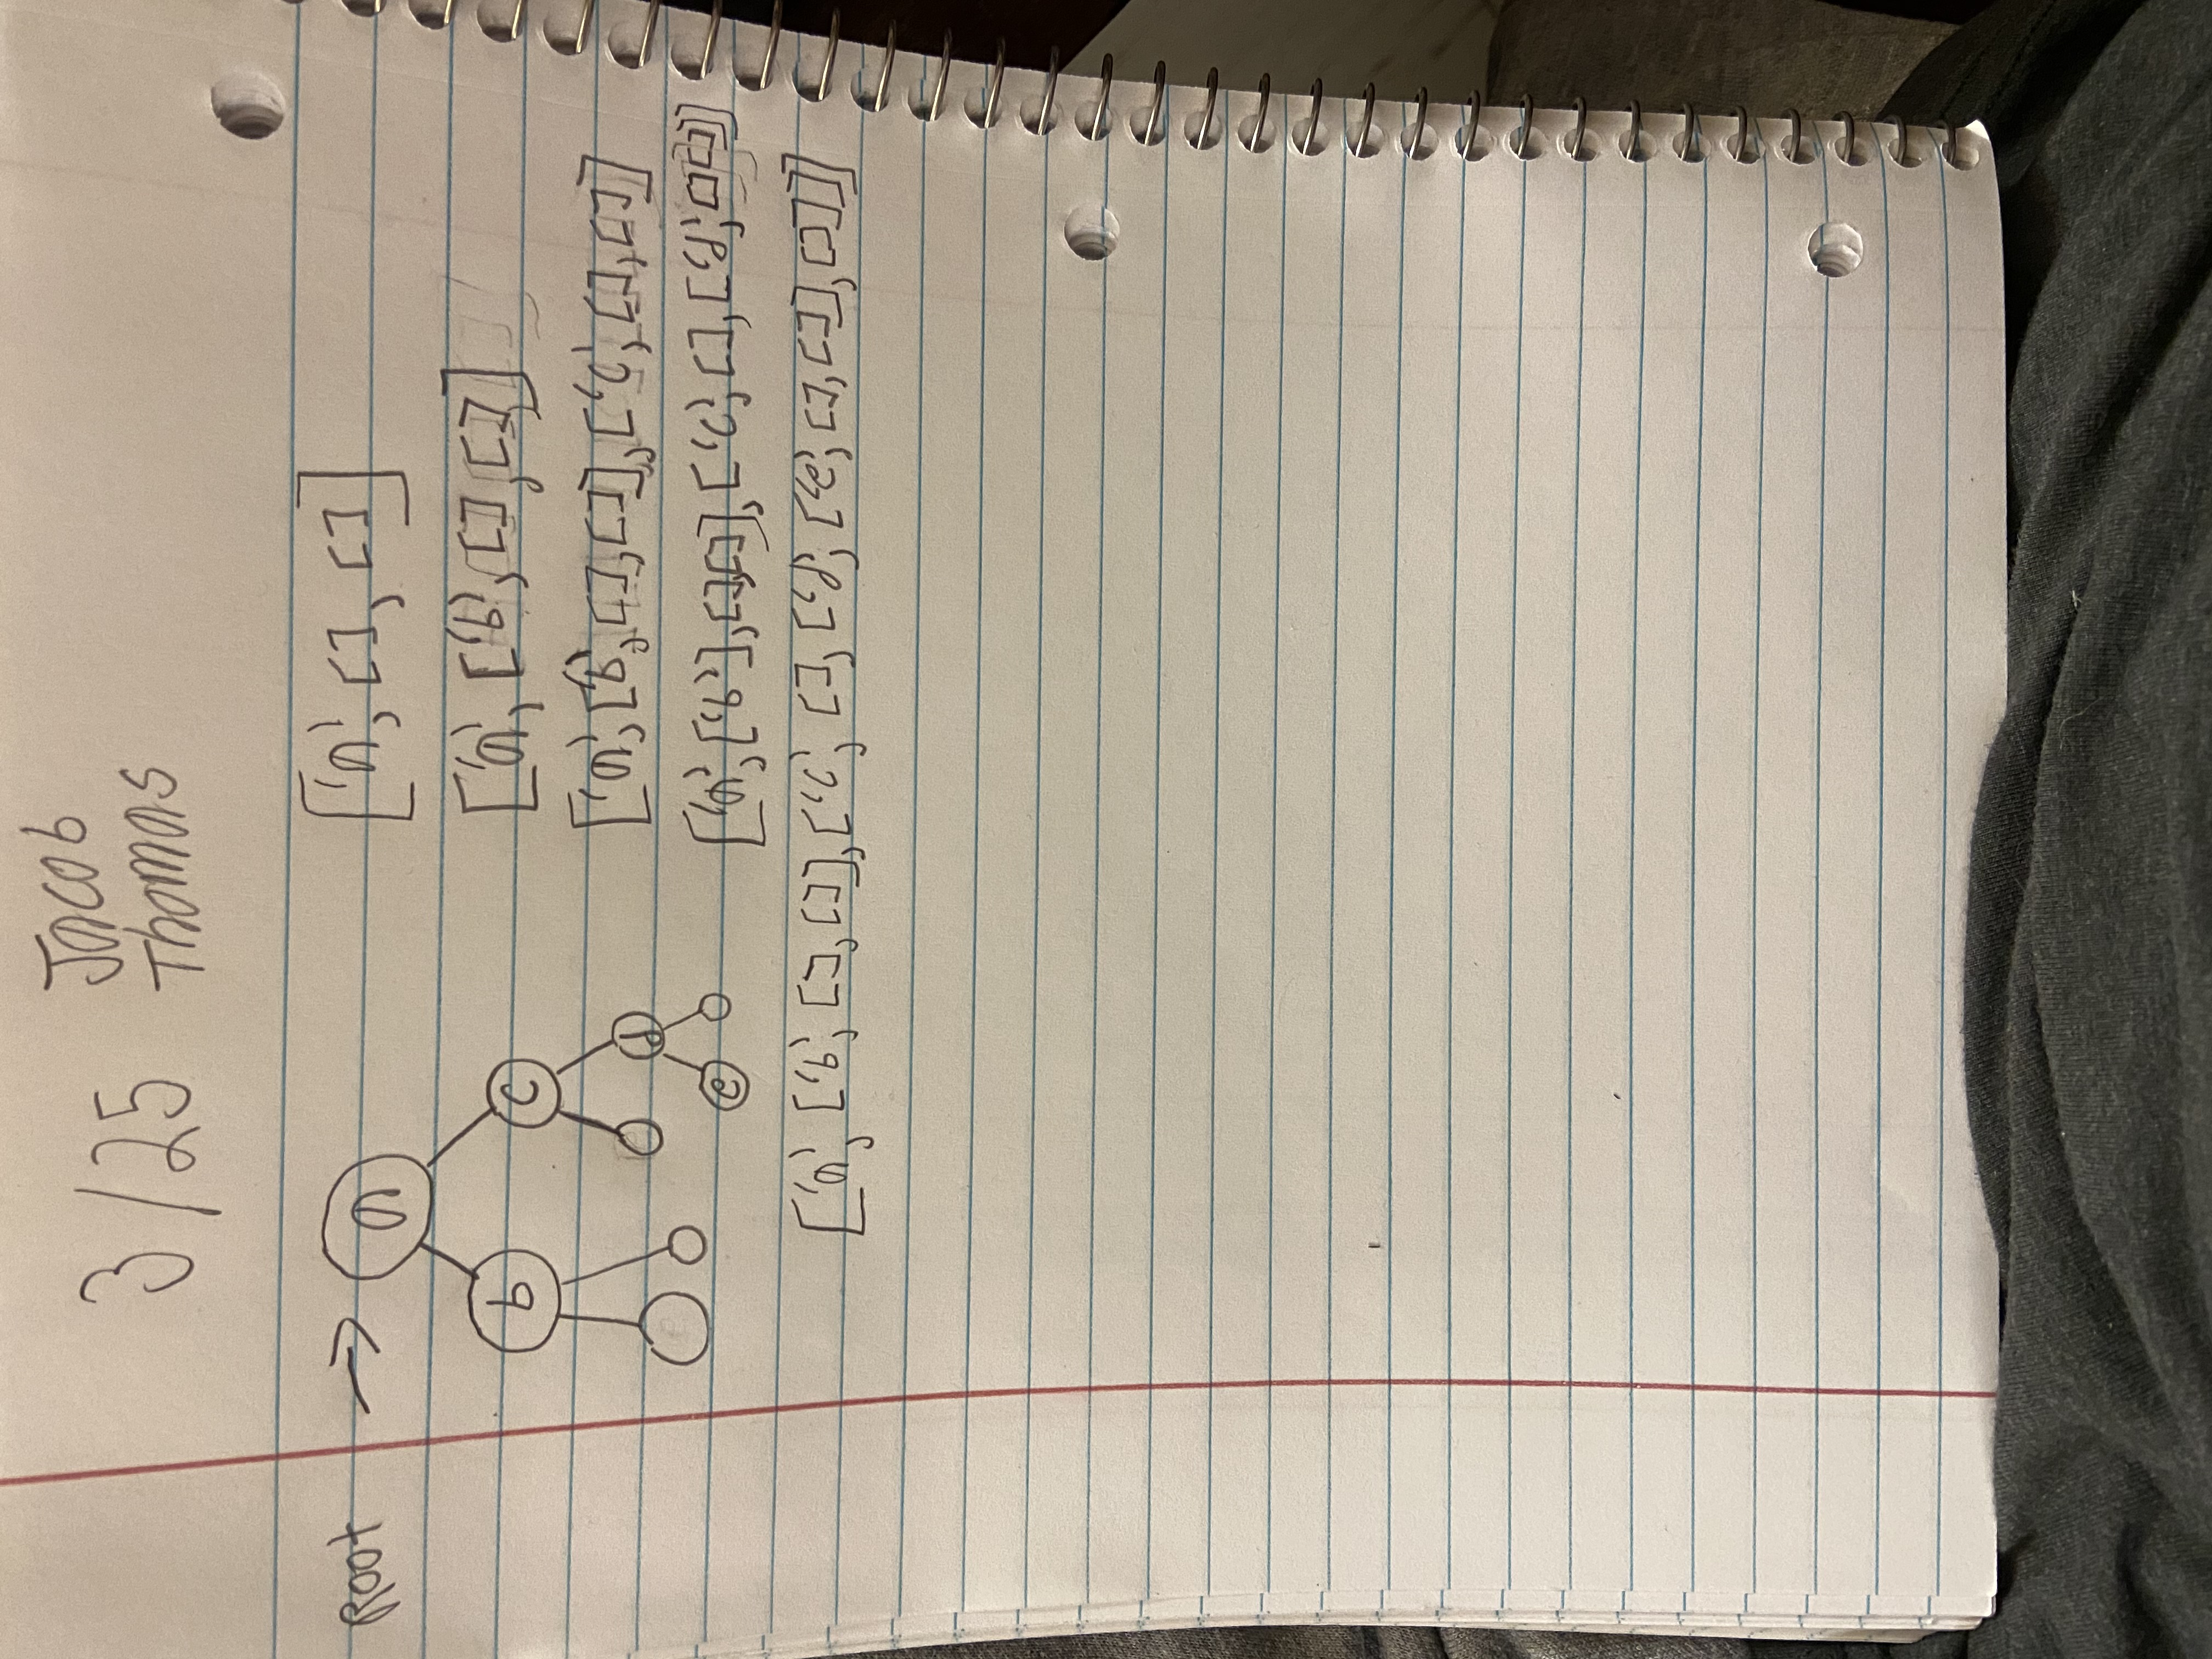 3/25
Jacob
Thomas
Root →
a
b
c
d
e
['a', [], []]
['a', ['b', [], []]
['a', ['b', [], []], ['c', [], []]
['a', ['b'], [], []], ['c', [], ['d', [] []]]
['a', ['b', [], []], ['c', [], ['d', ['e', [], []], []]]]